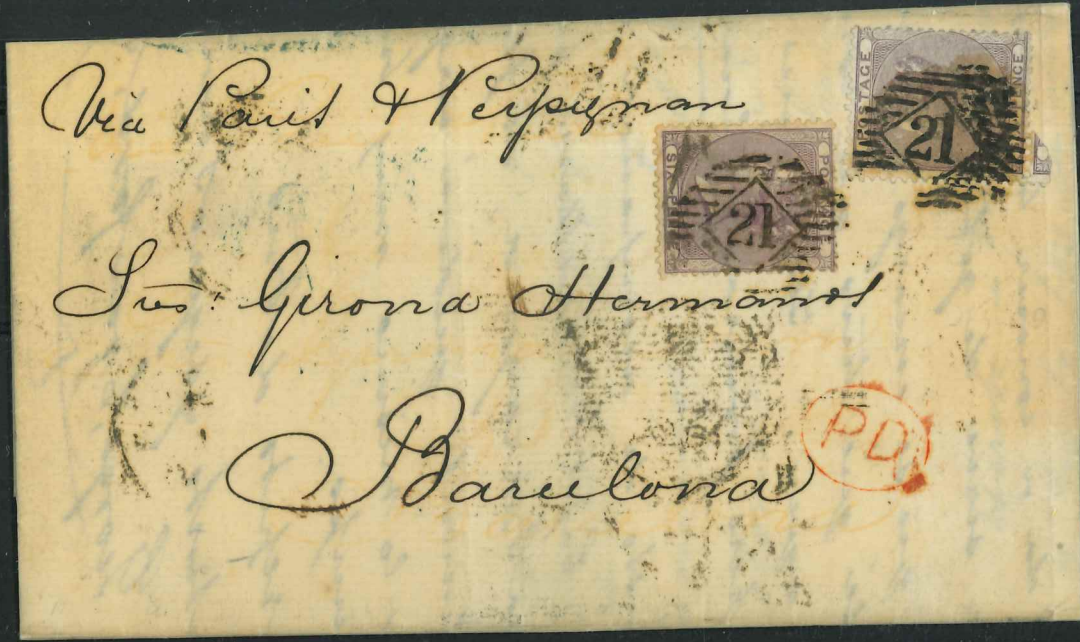 Via Paris & Perpignan
POSTAGE
21
21
Sres. Gerona Hermanos
Barcelona
PD